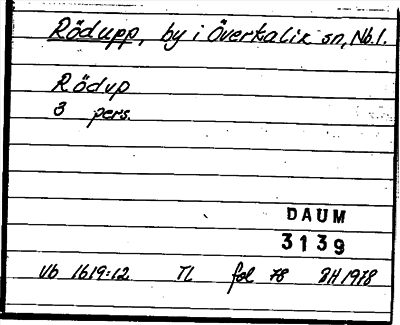 Rödupp, by i Överkalix sn, Nb.l.
Rödup
3 pers.
DAUM
3139
Vb 1619:12 TL fol 78 BH 1978